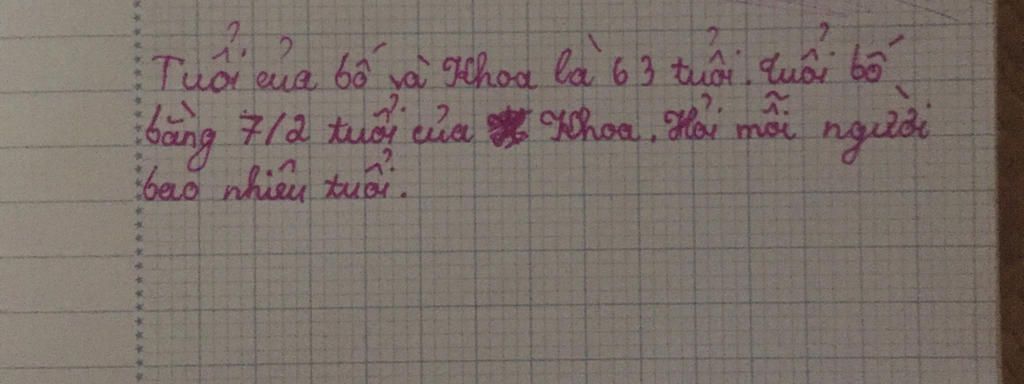 Tuổi của bố và Khoa là 63 tuổi. tuổi bố
bằng 7/2 tuổi của Khoa. Hỏi mỗi người
bao nhiêu tuổi.